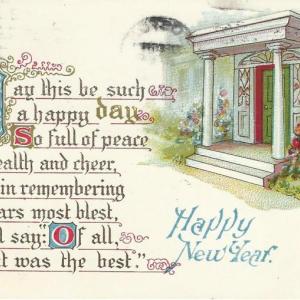 May this be such
a happy day
So full of peace
ealth and cheer,
in remembering
ars most blest,
l say: Of all,
t was the best."
Happy
New Year.